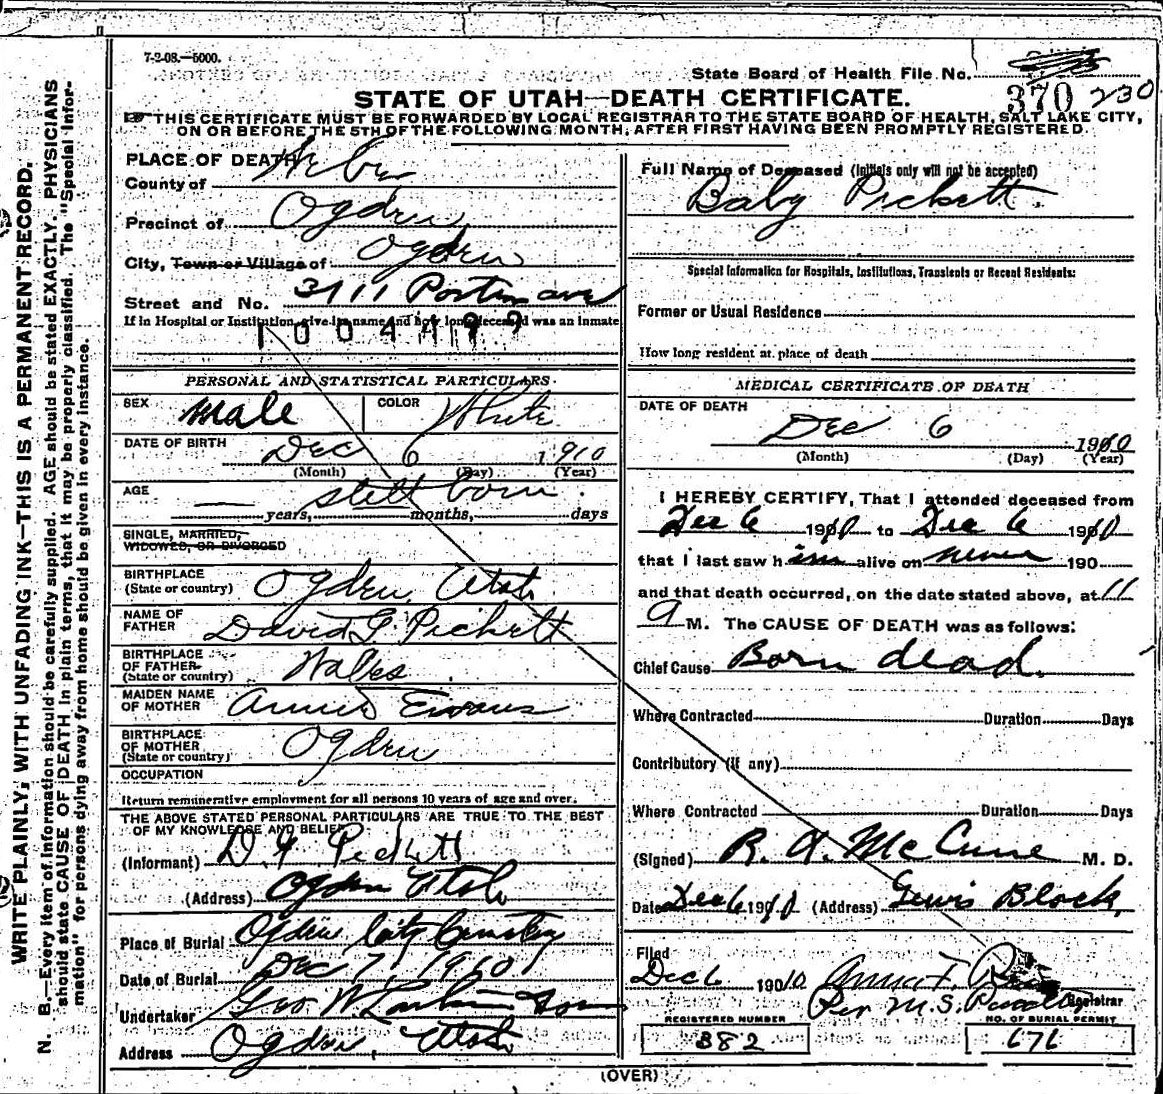 7-2-08.—5000.
State Board of Health File No.
370 230
STATE OF UTAH—DEATH CERTIFICATE.
THIS CERTIFICATE MUST BE FORWARDED BY LOCAL REGISTRAR TO THE STATE BOARD OF HEALTH, SALT LAKE CITY,
ON OR BEFORE THE 5TH OF THE FOLLOWING MONTH, AFTER FIRST HAVING BEEN PROMPTLY REGISTERED.
WRITE PLAINLY, WITH UNFADING INK—THIS IS A PERMANENT RECORD.
N. B.—Every item of information should be carefully supplied. AGE should be stated EXACTLY. PHYSICIANS
should state CAUSE OF DEATH in plain terms, that it may be properly classified. The "Special Infor-
mation" for persons dying away from home should be given in every instance.
PLACE OF DEATH
County of Weber
Precinct of Ogden
City, Town or Village of Ogden
Street and No. 3111 ave
If in Hospital or Institution, give its name and how long deceased was an inmate
1004499
PERSONAL AND STATISTICAL PARTICULARS.
SEX Male COLOR White
DATE OF BIRTH Dec 6 1910
(Month) (Day) (Year)
AGE still born
years, months, days
SINGLE, MARRIED,
WIDOWED, OR DIVORCED
BIRTHPLACE
(State or country) Ogden, Utah
NAME OF
FATHER David G. Pickett
BIRTHPLACE
OF FATHER
(State or country) Wales
MAIDEN NAME
OF MOTHER Annie Evans
BIRTHPLACE
OF MOTHER
(State or country) Ogden
OCCUPATION
Return remunerative employment for all persons 10 years of age and over.
THE ABOVE STATED PERSONAL PARTICULARS ARE TRUE TO THE BEST
OF MY KNOWLEDGE AND BELIEF
(Informant) D. G. Pickett
(Address) Ogden Utah
Place of Burial Ogden City Cemetery
Date of Burial Dec 7, 1910
Undertaker Geo W Larkin & Sons
Address Ogden, Utah
Full Name of Deceased (Initials only will not be accepted)
Baby Pickett.
Special Information for Hospitals, Institutions, Transients or Recent Residents:
Former or Usual Residence
How long resident at place of death
MEDICAL CERTIFICATE OF DEATH
DATE OF DEATH
Dec 6 1910
(Month) (Day) (Year)
I HEREBY CERTIFY, That I attended deceased from
Dec 6 1910 to Dec 6 1910
that I last saw him alive on never 190
and that death occurred, on the date stated above, at 11
a M. The CAUSE OF DEATH was as follows:
Chief Cause Born dead.
Where Contracted Duration Days
Contributory (if any)
Where Contracted Duration Days
(Signed) R. A. McCune M. D.
Date Dec 6 1910 (Address) Lewis Block,
Filed
Dec 6 1910 Anna F.
Per M. S. Registrar
REGISTERED NUMBER
382
NO. OF BURIAL PERMIT
676
(OVER)